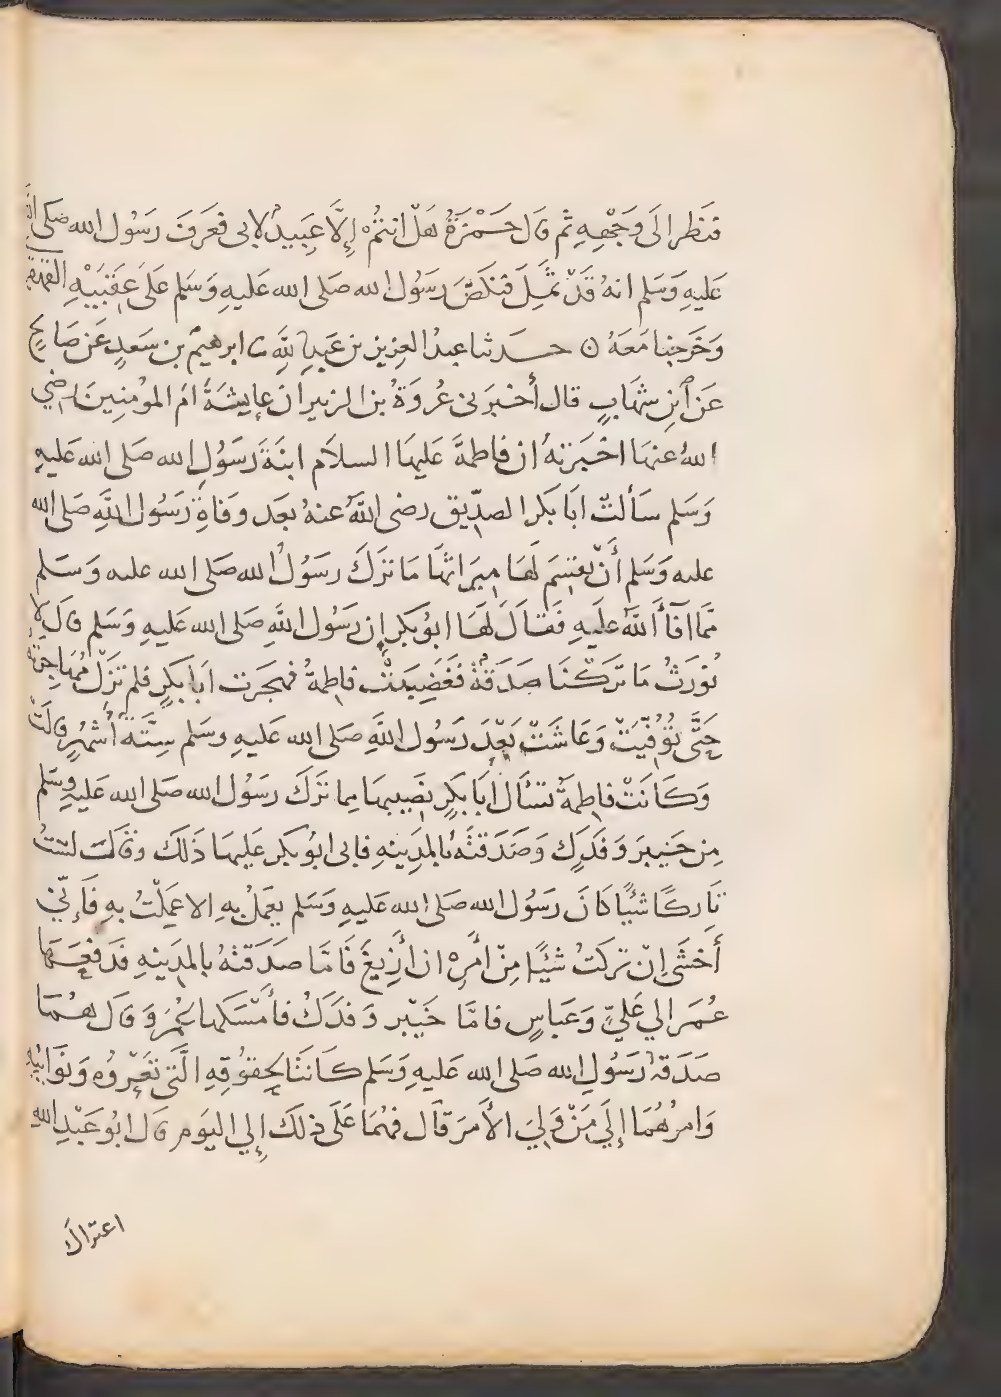 فنظر الى وجهه ثم قال حمزة هل انتم إلا عبيد لابى فعرف رسول الله صلى الله
عليه وسلم انه قد ثمل فنكص رسول الله صلى الله عليه وسلم على عقبيه القهقرى
وخرجنا معه حدثنا عبد العزيز بن عبد الله ابرهيم بن سعد عن صالح
عن ابن شهاب قال أخبرنى عروة بن الزبير ان عايشة ام المؤمنين رضي
الله عنها اخبرته ان فاطمة عليها السلام ابنة رسول الله صلى الله عليه
وسلم سألت ابا بكر الصديق رضى الله عنه بعد وفاة رسول الله صلى الله
عليه وسلم أن يقسم لها ميراثها ما ترك رسول الله صلى الله عليه وسلم
مما افآ الله عليه فقال لها ابو بكر إن رسول الله صلى الله عليه وسلم قال لا
نورث ما تركنا صدقة فغضبت فاطمة فهجرت ابا بكر فلم تزل مهاجرته
حتى توفيت وعاشت بعد رسول الله صلى الله عليه وسلم ستة أشهر قالت
وكانت فاطمة تسأل أبا بكر نصيبها مما ترك رسول الله صلى الله عليه وسلم
من خيبر وفدك وصدقته بالمدينه فابى ابو بكر عليها ذلك وقال لست
تاركا شئيا كان رسول الله صلى الله عليه وسلم يعمل به الا عملت به فإنى
أخشى إن تركت شيئا من أمره ان أزيغ فاما صدقته بالمدينه فدفعها
عمر الي علي وعباس فاما خيبر وفدك فأمسكها عمر وقال هما
صدقة رسول الله صلى الله عليه وسلم كانتا لحقوقه التى تعروه ونوائبه
وامرهما إلي من ولي الأمر قال فهما على ذلك إلي اليوم قال ابو عبد الله
اعتراك